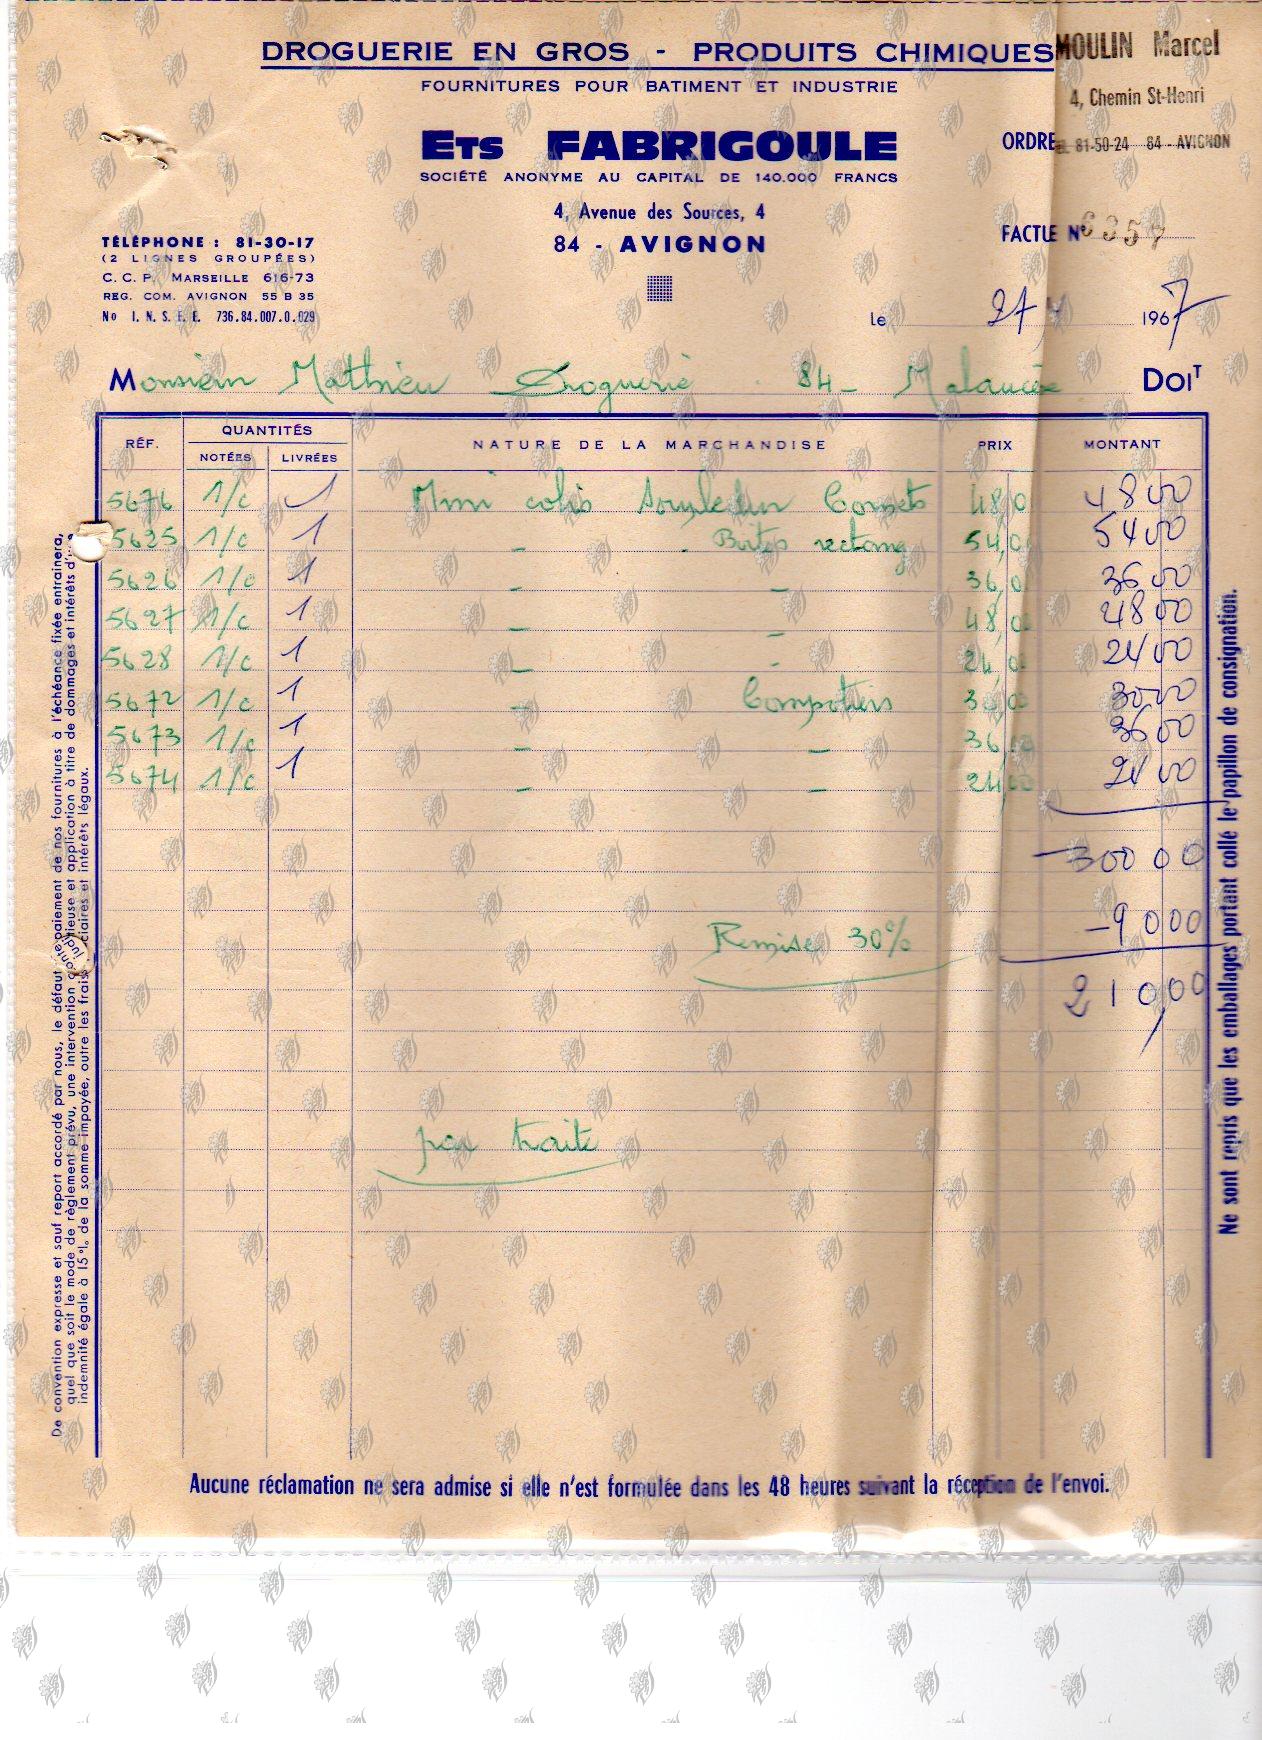 DROGUERIE EN GROS - PRODUITS CHIMIQUES
FOURNITURES POUR BATIMENT ET INDUSTRIE
ETS FABRIGOULE
SOCIÉTÉ ANONYME AU CAPITAL DE 140.000 FRANCS
4, Avenue des Sources, 4
84 - AVIGNON
MOULIN Marcel
4, Chemin St-Henri
81-50-24 84 - AVIGNON
ORDRE
TÉLÉPHONE : 81-30-17
(2 LIGNES GROUPÉES)
C. C. P. MARSEILLE 616-73
REG. COM. AVIGNON 55 B 35
No I. N. S. E. E. 736.84.007.0.029
FACTUE N°
Le 27 1967
Monsieur Mathieu Droguerie 84 - Malaucène DOIT
RÉF. QUANTITÉS NATURE DE LA MARCHANDISE PRIX MONTANT
NOTÉES LIVRÉES
5676 1/c 1 Mini colis Cornets 48,0 48 00
5625 1/c 1 - Boites rectang 54,0 54 00
5626 1/c 1 - - 36,0 36 00
5627 1/c 1 - - 48,00 48 00
5628 1/c 1 - - 24,00 24 00
5672 1/c 1 - Compotiers 30,00 30 00
5673 1/c 1 - - 36,00 36 00
5674 1/c 1 - - 24,00 24 00
300 00
Remise 30% - 90 00
210,00
par traite
De convention expresse et sauf report accordé par nous, le défaut de paiement de nos fournitures à l'échéance fixée entrainera,
quel que soit le mode de règlement prévu, une intervention contentieuse et application à titre de dommages et intérêts d'une
indemnité égale à 15 %, de la somme impayée, outre les frais judiciaires et intérêts légaux.
Ne sont repris que les emballages portant collé le papillon de consignation.
Aucune réclamation ne sera admise si elle n'est formulée dans les 48 heures suivant la réception de l'envoi.